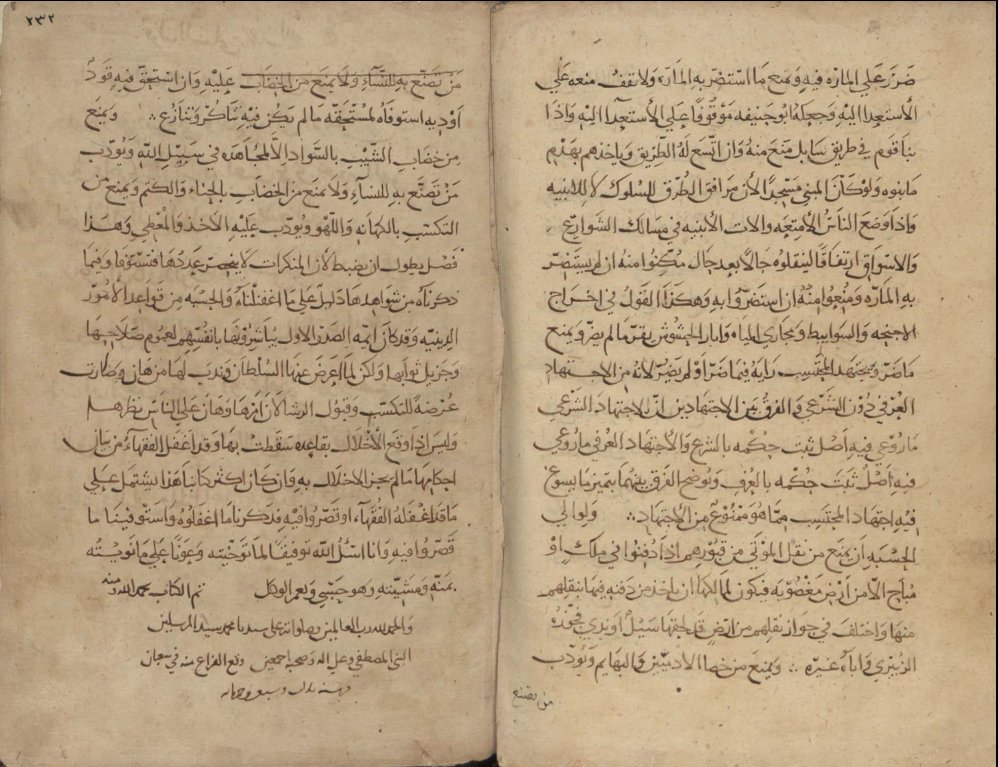 ضرر على المارة فيه ويمنع ما استضر به المارة ولا تقف منعه على
الأستعدا اليه وجعله ابو حنيفه موقوفا على الأستعدآ اليه واذا
بنا قوم في طريق سابل منع منه وان اتسع له الطريق وياخذهم بهدم
ما بنوه ولو كان المبني مسجدا لأن مرافق الطرق للسلوك لا للابنيه
واذا وضع الناس الأمتعه والات الأبنيه في مسالك الشوارع
والاسواق ارتفاقا لينقلوه حالا بعد حال مكنوا منه ان لم يستضر
به المارة ومنعوا منه ان استضروا به وهكذا القول في اخراج
الاجنحه والسوابيط ومجاري المياه وابار الحشوش يقر ما لم يضر ويمنع
ما ضر ويجتهد المحتسب رايه فيما ضر او لم يضر لأنه من الاجتهاد
العرفي دون الشرعي والفرق بين الاجتهادين ان الاجتهاد الشرعي
ما روعي فيه اصل ثبت حكمه بالشرع والاجتهاد العرفي ما روعي
فيه اصل ثبت حكمه بالعرف ويوضح الفرق بينهما بتميز ما يسوغ
فيه اجتهاد المحتسب مما هو ممنوع من الاجتهاد ∴ ولوالي
الحسبه ان يمنع من نقل الموتى من قبورهم اذا دفنوا في ملك او
مباح الا من ارض مغصوبه فيكون لمالكها ان ياخذ من دفنه فيها بنقلهم
منها واختلف في جواز نقلهم من ارض قد لحقها سيل او ندي فجوزه
الزبيري واباه غيره ∴ ويمنع من خصا الآدميين والبهايم ويؤدب
من تصنع
٢٣٢
من تصنع به للنسآء ولا يمنع من الخضاب عليه وان استحق فيه قود
او ديه استوفاه لمستحقه ما لم يكن فيه تناكر وتنازع ∴ ويمنع
من خضاب الشيب بالسواد الا لمجاهده في سبيل الله ويؤدب
من تصنع به للنسآء ولا يمنع من الخضاب بالحناء والكتم ويمنع من
التكسب بالكهانه واللهو ويؤدب عليه الآخذ والمعطي وهذا
فصل يطول ان يضبط لأن المنكرات لا ينحصر عددها فتستوفا وفيما
ذكرناه من شواهدها دليل على ما اغفلناه والحسبه من قواعد الأمور
الدينيه وقد كان ايمه الصدر الاول يباشرونها بانفسهم لعموم صلاحها
وجزيل ثوابها ولكن لما اعرض عنها السلطان وندب لها من هان وصارت
عرضة للتكسب وقبول الرشا لان امرها وهان على الناس نظرهم
وليس اذا وقع الأخلال بقاعده سقطت بها وقد اغفل الفقهاء من بيان
احكامها ما لم يجز الاخلال به وان كان اكثر كتابنا هذا يشتمل على
ما قد اغفله الفقهاء او قصروا فيه فذكرنا ما اغفلوه واستوفينا ما
قصروا فيه وانا اسئل الله توفيقا لما توخيته وعونا على ما نويته
بمنه ومشيته وهو حسبي ونعم الوكل تم الكتاب بحمد الله ومنه
والحمد لله رب العالمين وصلواته على سيدنا محمد سيد المرسلين
النبي المصطفى وعلى اله وصحبه اجمعين وقع الفراغ منه في شعبان